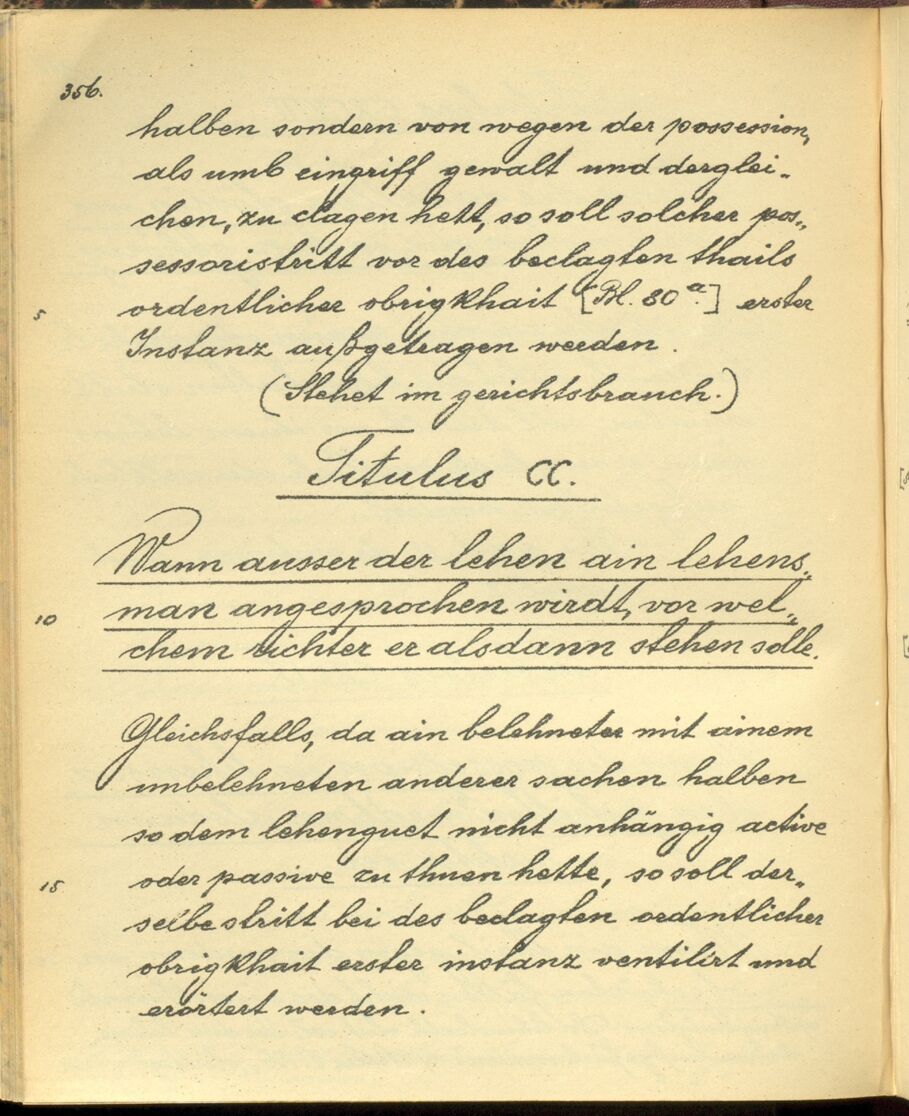 356.
halben sondern von wegen der possession,
als umb eingriff gewalt und derglei-
chen, zu clagen hett, so soll solcher pos„
sessoristritt vor des beclagten thails
5 ordentlicher obrigkhait [Bl. 80a.] erster
Instanz außgetragen werden.
(Stehet im gerichtsbrauch.)
Titulus CC.
Wann ausser der lehen ain lehens„
10 man angesprochen wirdt, vor wel„
chem richter er alsdann stehen solle.
Gleichsfalls, da ain belehneter mit ainem
unbelehneten anderer sachen halben
so dem lehenguet nicht anhängig active
15 oder passive zu thuen hette, so soll der„
selbe stritt bei des beclagten ordentlicher
obrigkhait erster instanz ventilirt und
erörtert werden.